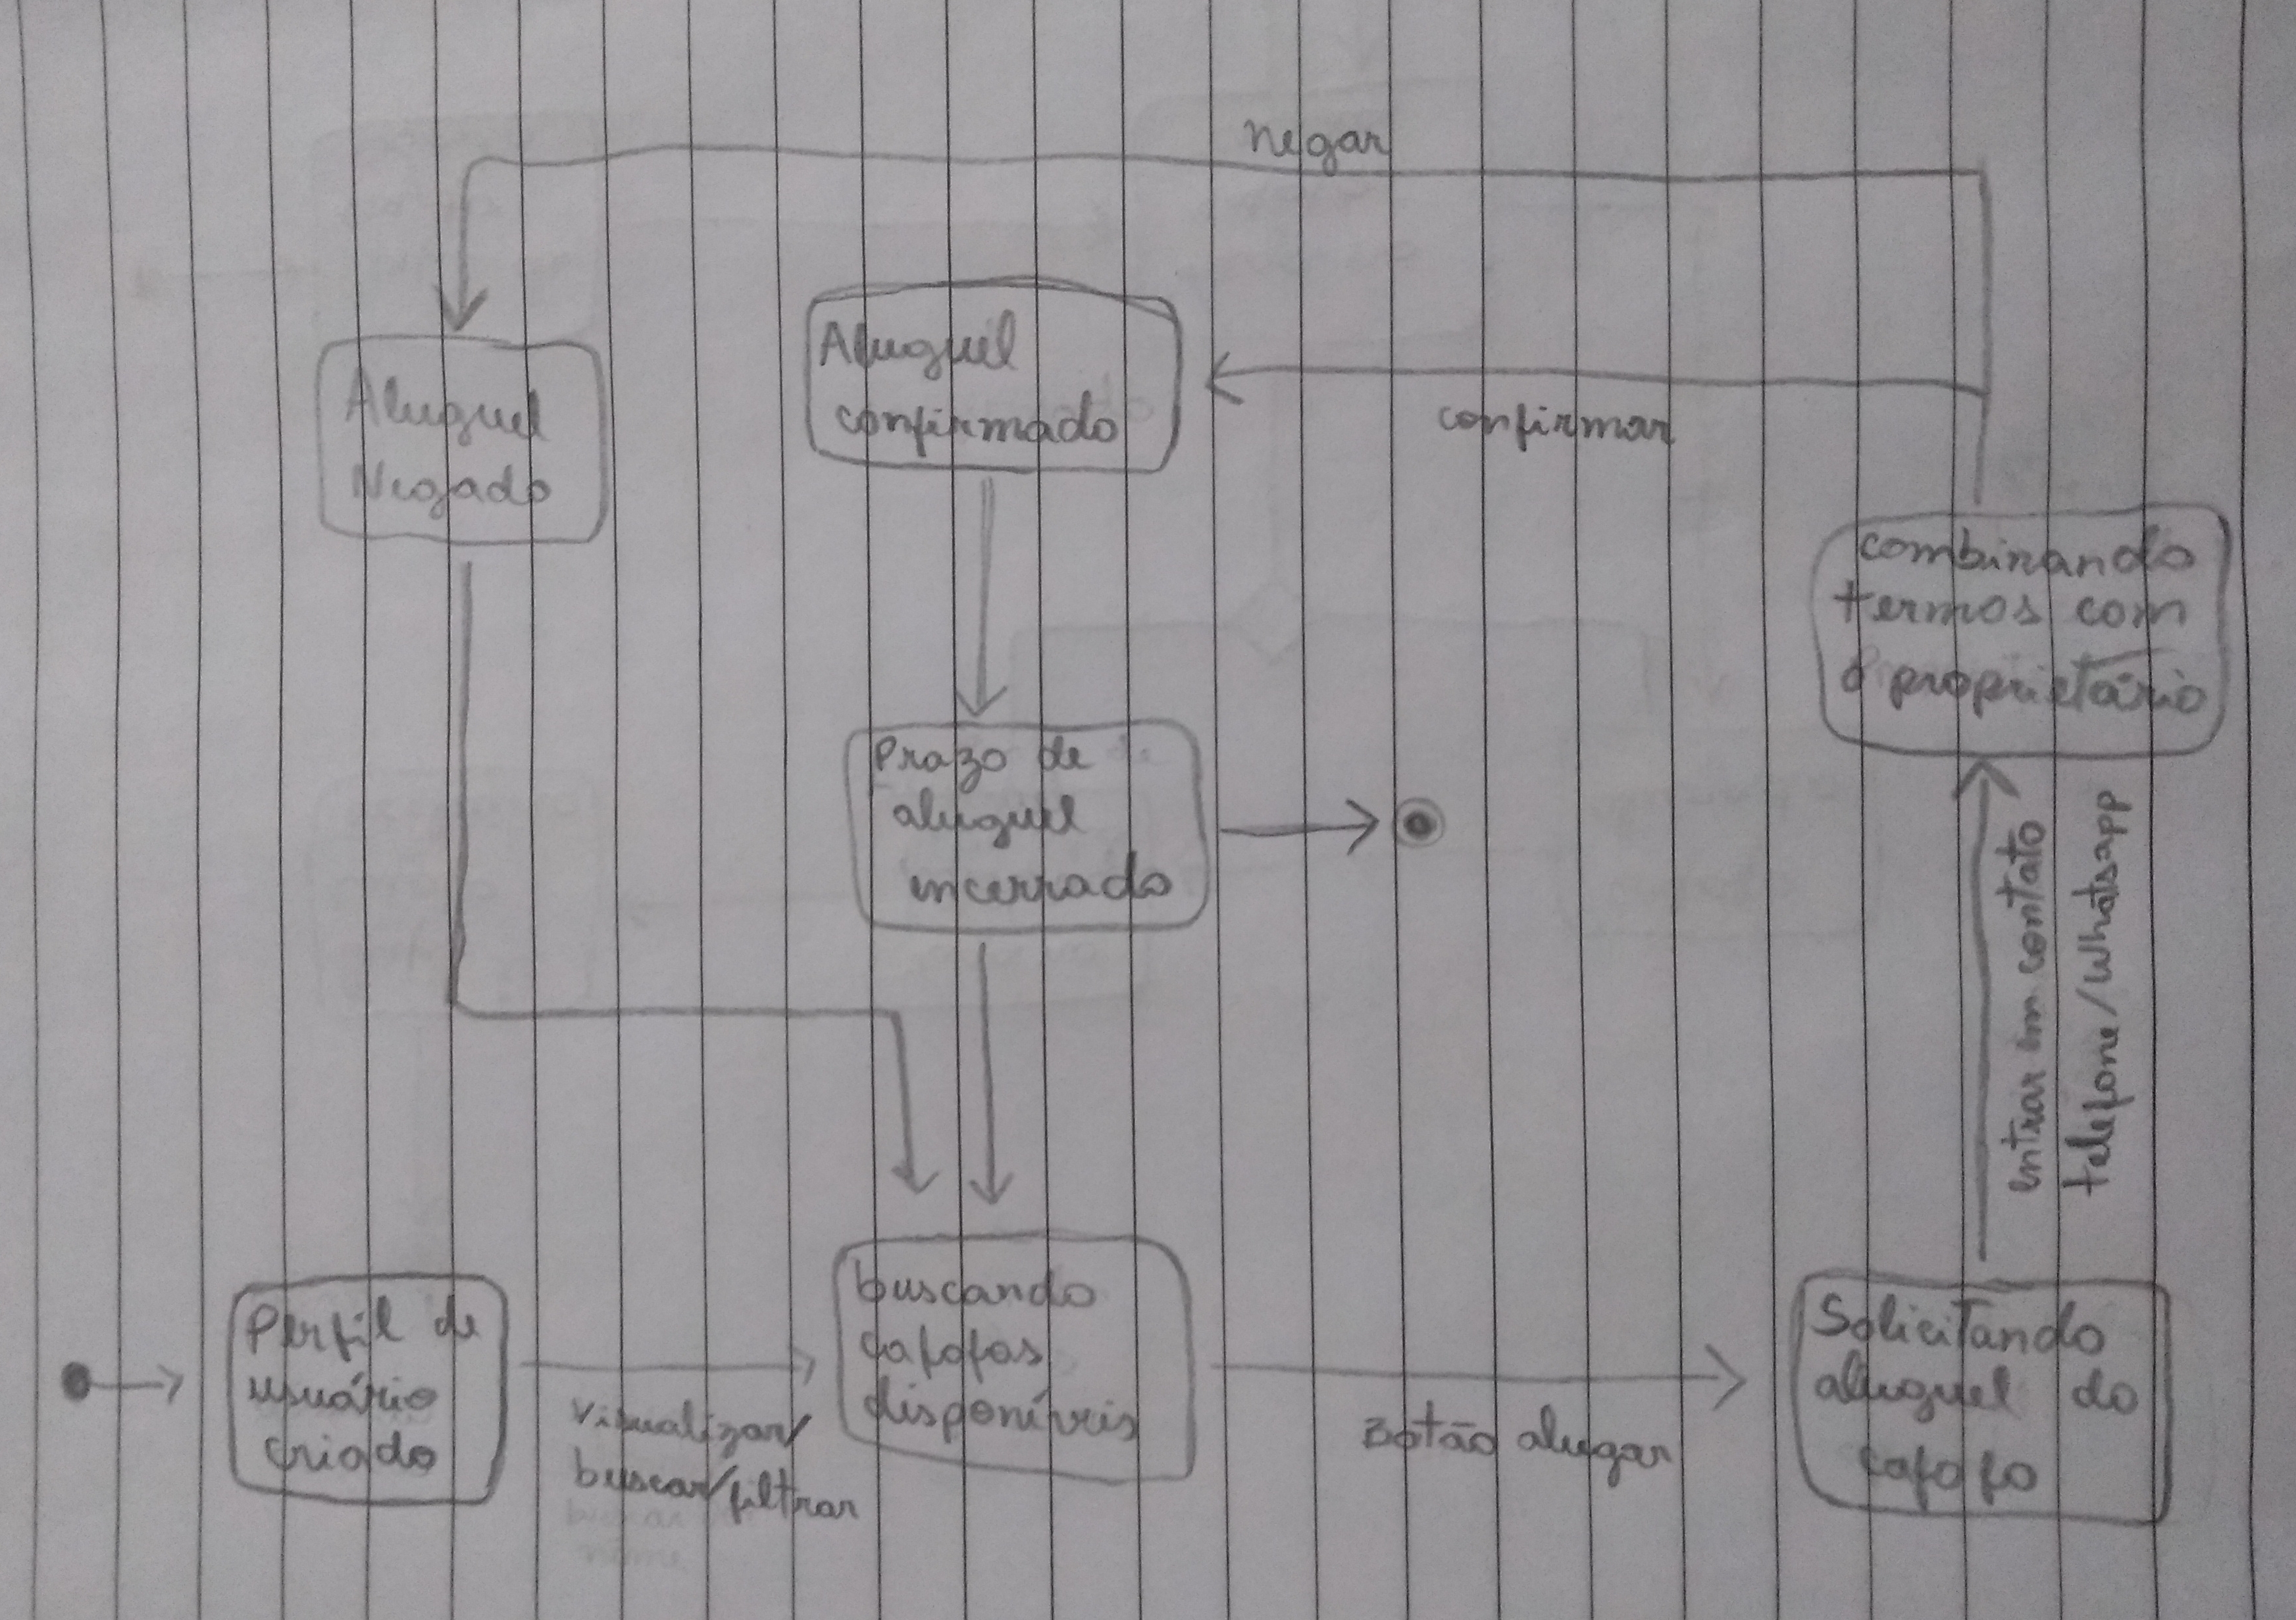 negar
Aluguel
confirmado
confirmar
Aluguel
Negado
combinando
termos com
o proprietário
Prazo de
aluguel
encerrado
entrar em contato
telefone/whatsapp
Perfil de
usuário
criado
visualizar/
buscar/filtrar
buscando
cafofos
disponíveis
Botão alugar
Solicitando
aluguel do
cafofo